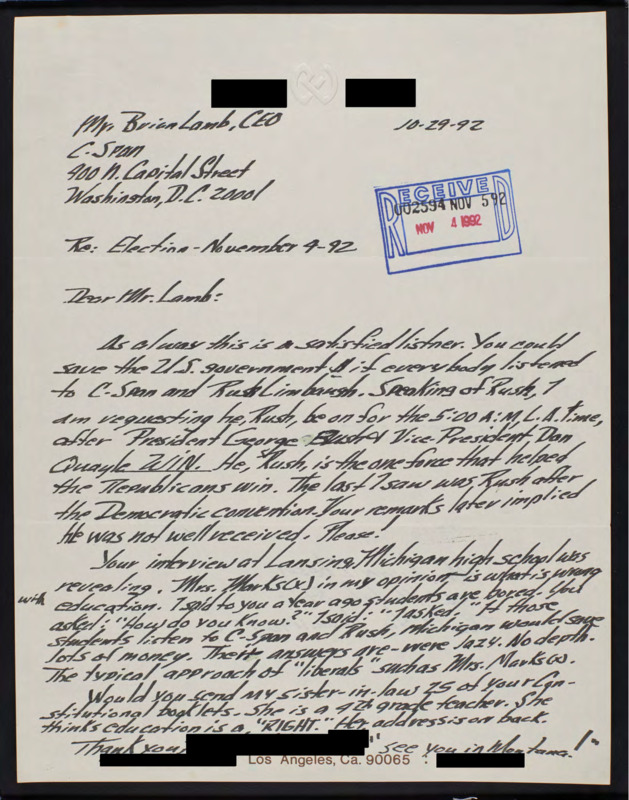 Mr. Brian Lamb, CEO
10-29-92
C-Span
400 N. Capital Street
Washington, D.C. 20001
RECEIVED
002594 NOV 5 92
NOV 4 1992
Re: Election - November 4-92
Dear Mr. Lamb:
As always this is a satisfied listner. You could
save the U.S. government $ if everybody listened
to C-Span and Rush Limbaugh. Speaking of Rush, I
am requesting he, Rush, be on for the 5:00 A.M. L.A. time,
after President George Bush & Vice-President, Dan
Quayle WIN. He, Rush, is the one force that helped
the Republicans win. The last I saw was Rush after
the Democratic convention. Your remarks later implied
he was not well received. Please.
Your interview at Lansing, Michigan high school was
revealing. Mrs. Marks(x) in my opinion is what is wrong
with education. I said to you a year ago students are bored. You
asked: "How do you know?" I said: "I asked." If those
students listen to C-Span and Rush, Michigan would save
lots of money. Their answers are-were lazy. No depth.
The typical approach of "liberals" such as Mrs. Marks(x).
Would you send my sister-in-law 25 of your Con-
stitutional booklets. She is a 4th grade teacher. She
thinks education is a "RIGHT." Her address is on back.
Thank you, " see you in Montana!"
Los Angeles, Ca. 90065 :